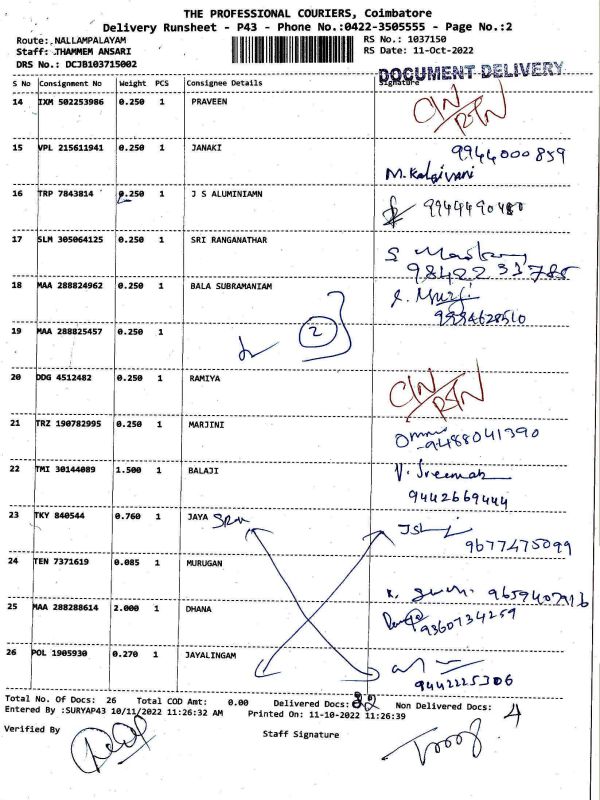 THE PROFESSIONAL COURIERS, Coimbatore
Delivery Runsheet - P43 - Phone No.:0422-3505555 - Page No.:2
Route: NALLAMPALAYAM RS No.: 1037150
Staff: THAMMEM ANSARI RS Date: 11-Oct-2022
DRS No.: DCJB103715002
DOCUMENT DELIVERY
S No Consignment No Weight PCS Consignee Details Signature
14 IXM 502253986 0.250 1 PRAVEEN
15 VPL 215611941 0.250 1 JANAKI 9944000859
M. Kalaivani
16 TRP 7843814 0.250 1 J S ALUMINIAMN 9944490480
17 SLM 305064125 0.250 1 SRI RANGANATHAR
98422 33785
18 MAA 288824962 0.250 1 BALA SUBRAMANIAM
9994628510
2
19 MAA 288825457 0.250 1
20 DDG 4512482 0.250 1 RAMIYA
21 TRZ 190782995 0.250 1 MARJINI
9488041390
22 TMI 30144089 1.500 1 BALAJI
9442669444
23 TKY 840544 0.760 1 JAYA
9677475099
24 TEN 7371619 0.085 1 MURUGAN
9659407916
25 MAA 288288614 2.000 1 DHANA
9360734259
26 POL 1905930 0.270 1 JAYALINGAM
9442225306
Total No. Of Docs: 26 Total COD Amt: 0.00 Delivered Docs: 22 Non Delivered Docs: 4
Entered By :SURYAP43 10/11/2022 11:26:32 AM Printed On: 11-10-2022 11:26:39
Verified By Staff Signature